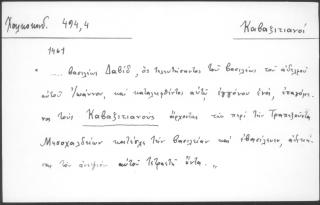 Χαλκοκονδ. 494,4 Καβαζιτιανοί
1461
"... βασιλεὺς Δαβίδ, ὃς τελευτήσαντος τοῦ βασιλέως τοῦ ἀδελφοῦ
αὐτοῦ Ἰωάννου, καὶ καταλειφθέντος αὐτῷ ἐγγόνου ἑνός, ἐπαγόμε-
νος τοὺς Καβαζιτιανοὺς ἄρχοντας τῶν περὶ τὴν Τραπεζοῦντα
Μεσοχαλδίων κατέσχε τὴν βασιλείαν καὶ ἐβασίλευσε, ἀδική-
σας τὸν ἀνεψιὸν αὐτοῦ τετραετῆ ὄντα."